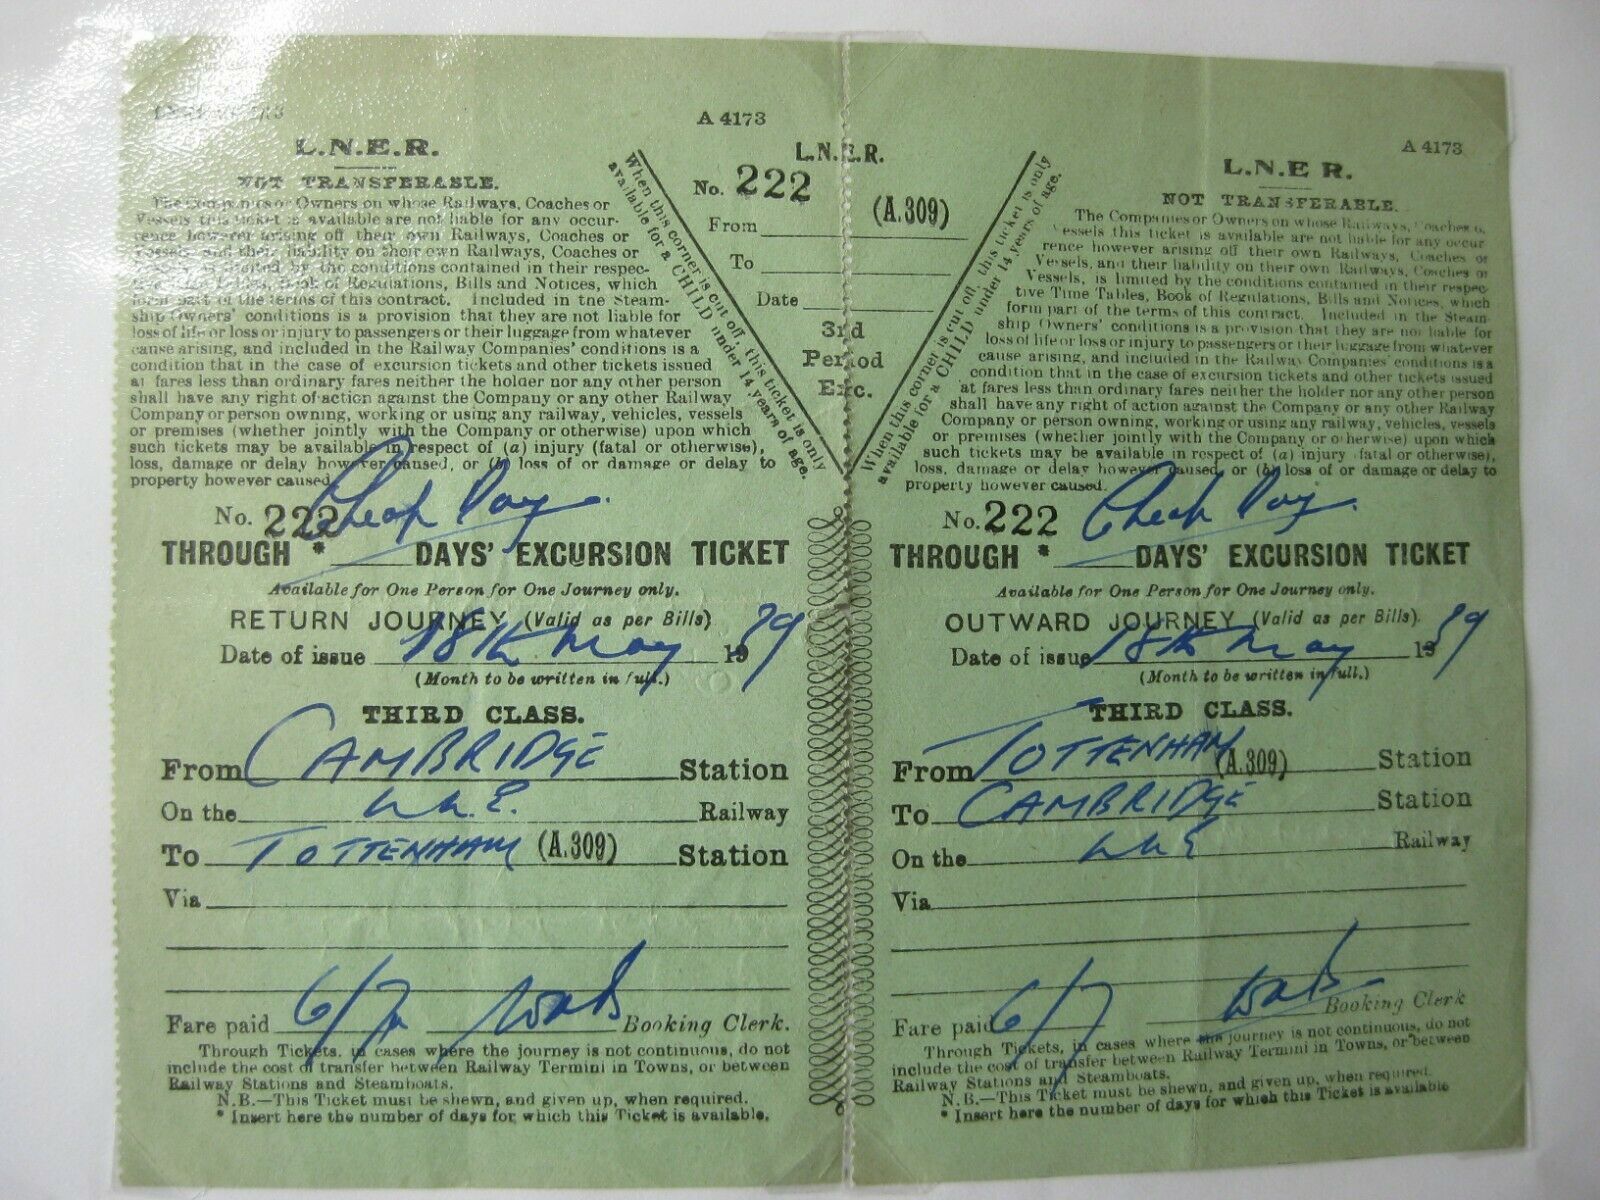 A 4173
L.N.E.R.
NOT TRANSFERABLE.
The Companies or Owners on whose Railways, Coaches or
Vessels this ticket is available are not liable for any occur-
rence however arising off their own Railways, Coaches or
Vessels and their liability on their own Railways, Coaches or
by the conditions contained in their respec-
Book of Regulations, Bills and Notices, which
form part of the terms of this contract. Included in the Steam-
ship Owners' conditions is a provision that they are not liable for
loss of life or loss or injury to passengers or their luggage from whatever
cause arising, and included in the Railway Companies' conditions is a
condition that in the case of excursion tickets and other tickets issued
at fares less than ordinary fares neither the holder nor any other person
shall have any right of action against the Company or any other Railway
Company or person owning, working or using any railway, vehicles, vessels
or premises (whether jointly with the Company or otherwise) upon which
such tickets may be available in respect of (a) injury (fatal or otherwise),
loss, damage or delay however caused, or (b) loss of or damage or delay to
property however caused.
When this corner is cut off, this ticket is only
available for a CHILD under 14 years of age.
No. 222 Cheap Day
THROUGH * DAYS' EXCURSION TICKET
Available for One Person for One Journey only.
RETURN JOURNEY (Valid as per Bills)
Date of issue 18th May 1939
(Month to be written in full.)
THIRD CLASS.
From CAMBRIDGE Station
On the L.N.E. Railway
To TOTTENHAM (A.309) Station
Via
Fare paid 6/7 Booking Clerk.
Through Tickets, in cases where the journey is not continuous, do not
include the cost of transfer between Railway Termini in Towns, or between
Railway Stations and Steamboats.
N.B.—This Ticket must be shewn, and given up, when required.
* Insert here the number of days for which this Ticket is available.
L.N.E.R.
No. 222 (A.309)
From
To
Date
3rd
Period
Exc.
A 4173
L.N.E R.
NOT TRANSFERABLE.
The Companies or Owners on whose Railways, Coaches or
Vessels this ticket is available are not liable for any occur
rence however arising off their own Railways, Coaches or
Vessels, and their liability on their own Railways, Coaches or
Vessels, is limited by the conditions contained in their respec-
tive Time Tables, Book of Regulations, Bills and Notices, which
form part of the terms of this contract. Included in the Steam-
ship Owners' conditions is a provision that they are not liable for
loss of life or loss or injury to passengers or their luggage from whatever
cause arising, and included in the Railway Companies' conditions is a
condition that in the case of excursion tickets and other tickets issued
at fares less than ordinary fares neither the holder nor any other person
shall have any right of action against the Company or any other Railway
Company or person owning, working or using any railway, vehicles, vessels
or premises (whether jointly with the Company or otherwise) upon which
such tickets may be available in respect of (a) injury (fatal or otherwise),
loss, damage or delay however caused, or (b) loss of or damage or delay to
property however caused.
When this corner is cut off, this ticket is only
available for a CHILD under 14 years of age.
No. 222 Cheap Day
THROUGH * DAYS' EXCURSION TICKET
Available for One Person for One Journey only.
OUTWARD JOURNEY (Valid as per Bills).
Date of issue 18th May 1939
(Month to be written in full.)
THIRD CLASS.
From TOTTENHAM (A.309) Station
To CAMBRIDGE Station
On the L.N.E Railway
Via
Fare paid 6/7 Booking Clerk
Through Tickets, in cases where the journey is not continuous, do not
include the cost of transfer between Railway Termini in Towns, or between
Railway Stations and Steamboats.
N.B.—This Ticket must be shewn, and given up, when required.
* Insert here the number of days for which this Ticket is available